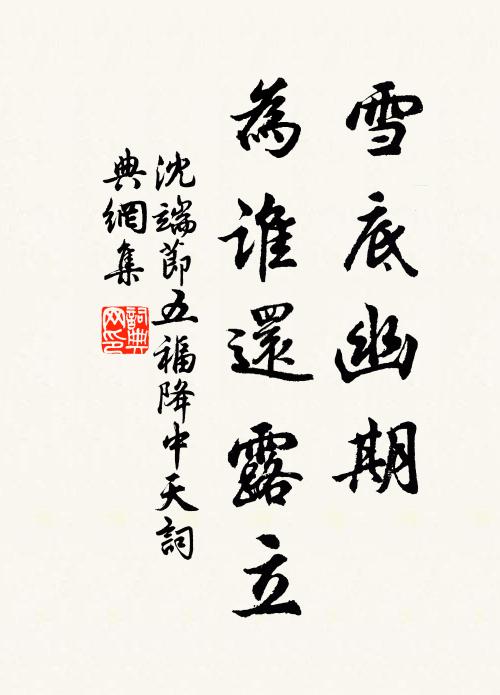 雪底幽期
為誰還露立
沈端節五福降中天詞
典網集
詞典网印